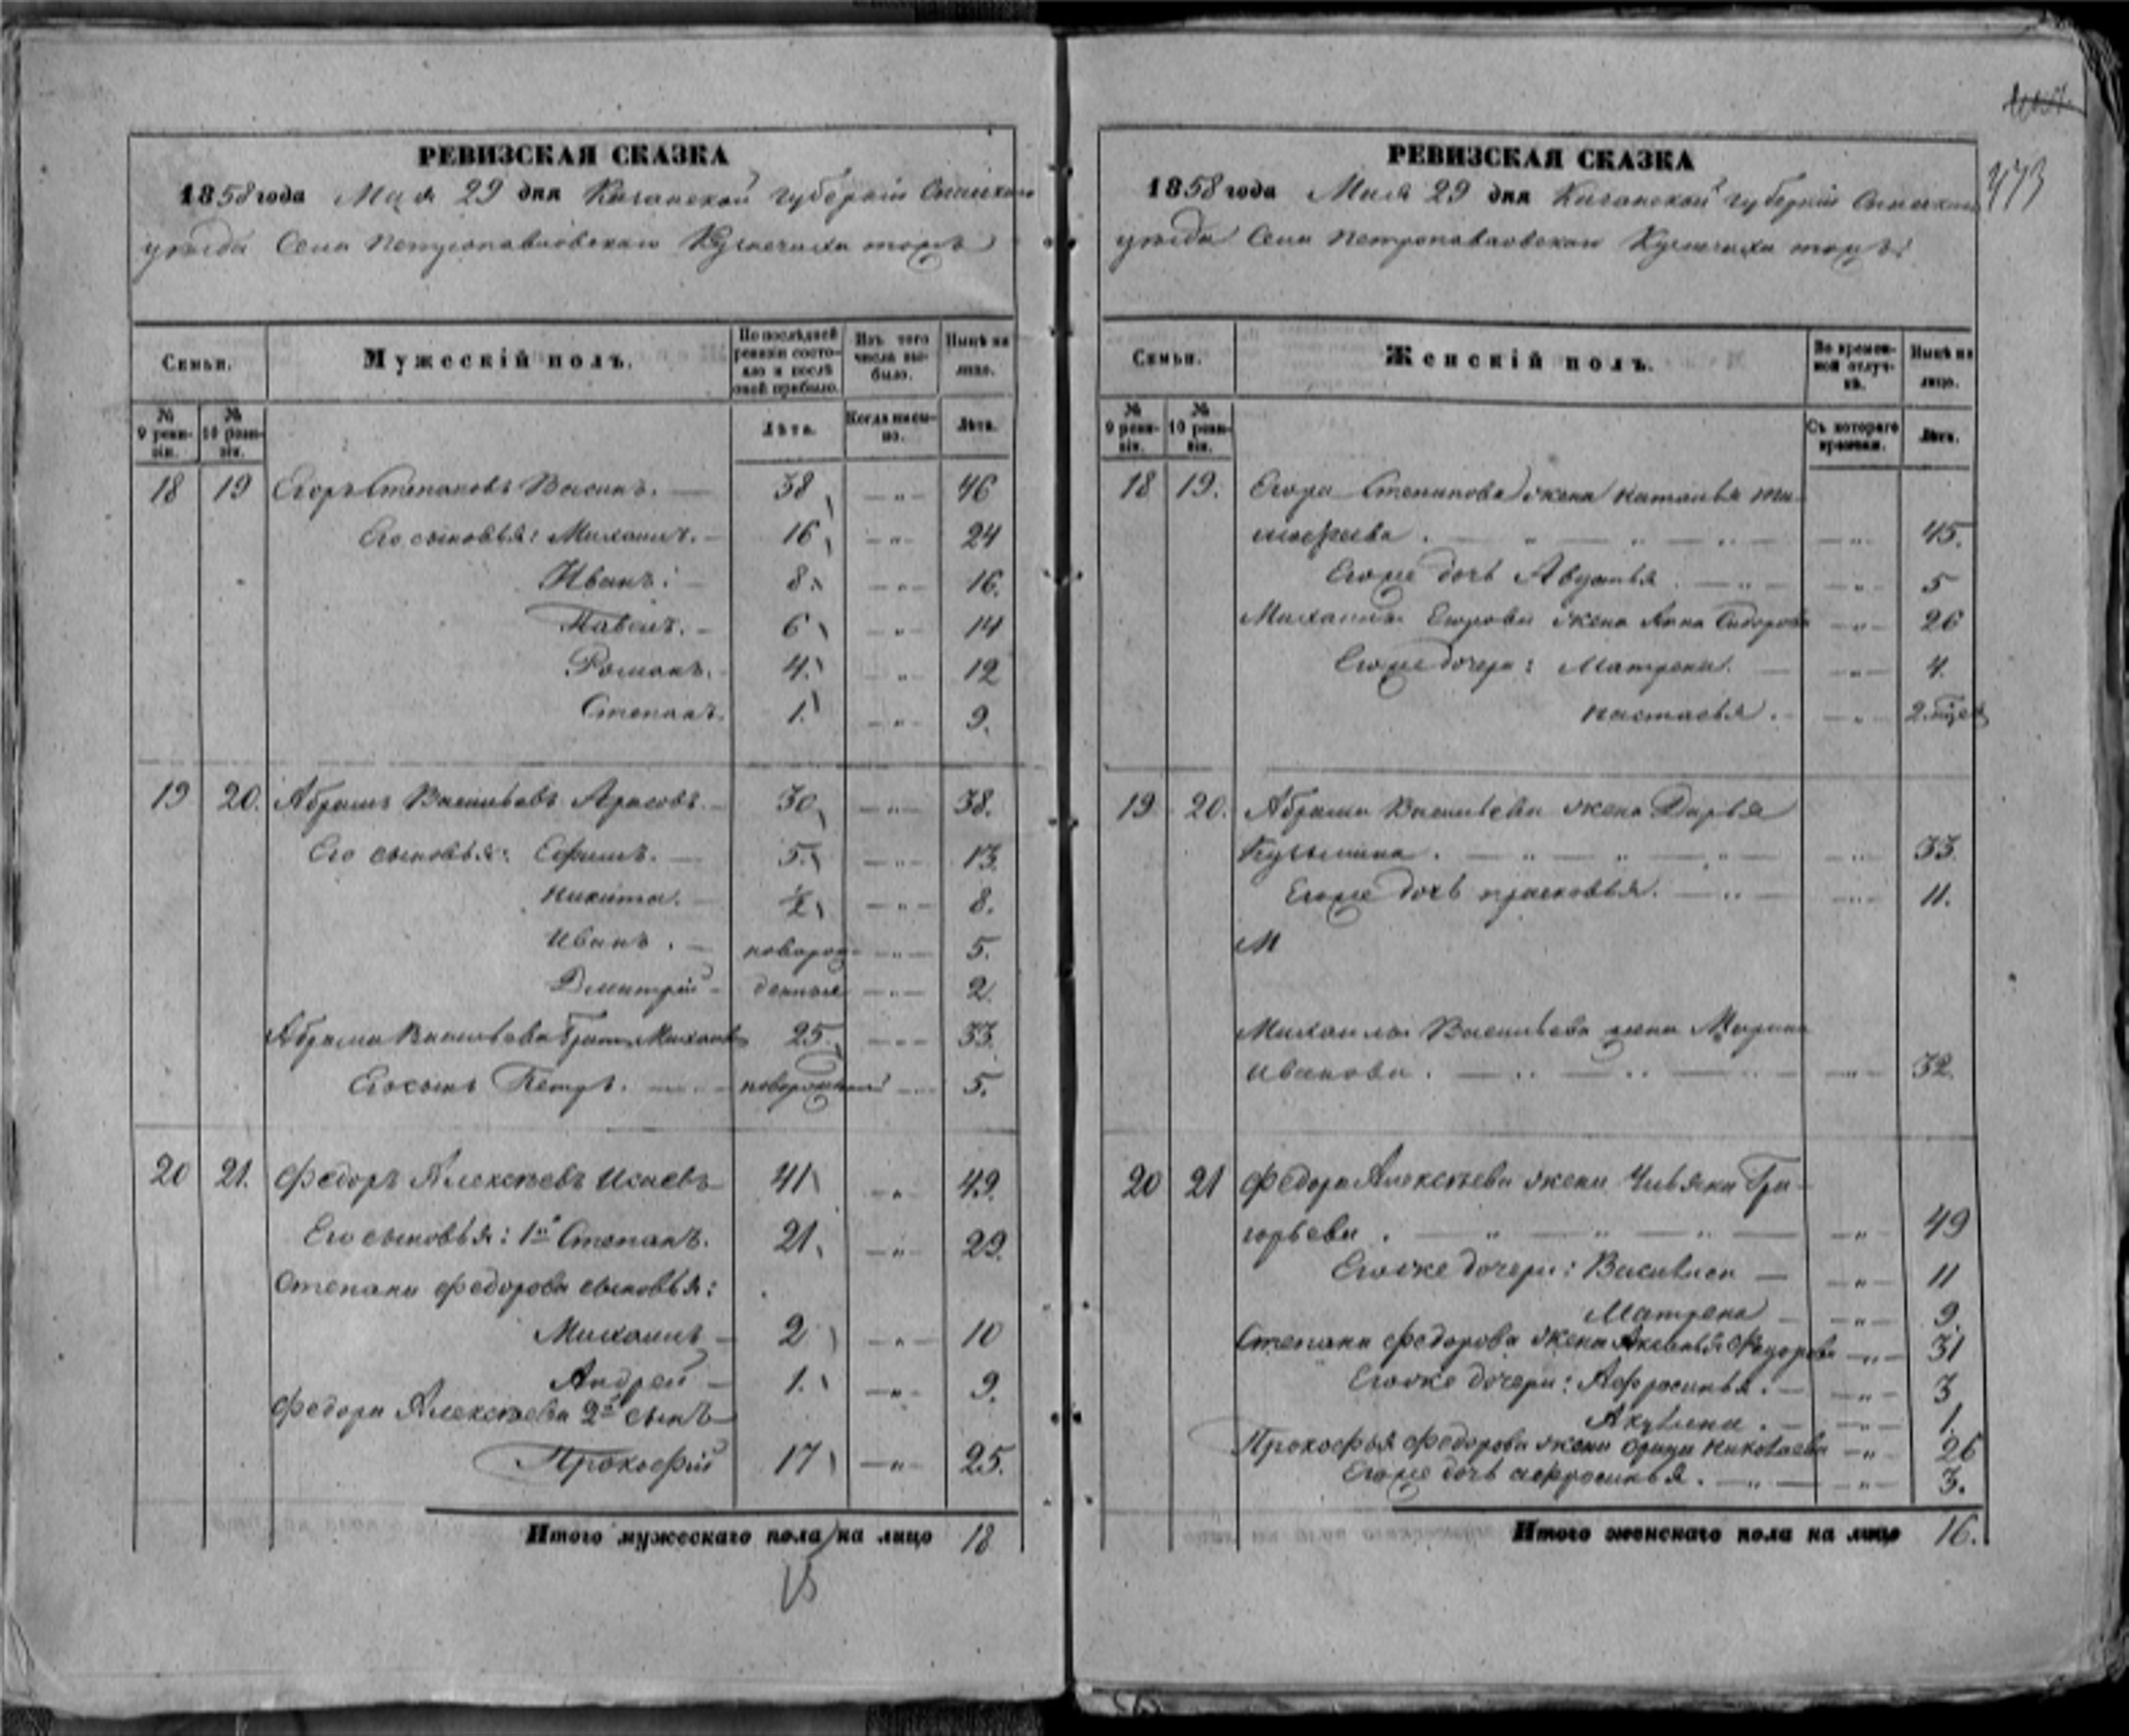 РЕВИЗСКАЯ СКАЗКА
1858 года Мая 29 дня Казанской губерніи Спаскаго
уезда Села Петропавловскаго Кузнечиха тожъ
Семьи.
Мужескій полъ.
По последней ревизіи состояло и после оной прибыло.
Изъ того числа выбыло.
Ныне на лицо.
№ 9 ревизіи.
№ 10 ревизіи.
Лета.
Когда именно.
Лета.
18 19 Егоръ Степановъ Васинъ. — 38 — " — 46
Его сыновья: Михаилъ. — 16 — " — 24
Иванъ. — 8 — " — 16.
Павелъ. — 6 — " — 14
Романъ. 4. — " — 12
Степанъ. 1. — " — 9.
19 20. Абрамъ Васильевъ — 30 — " — 38.
Его сыновья: Ефимъ. — 5. — " — 13.
Никита. — — " — 8.
Иванъ. — новорож- — " — 5.
Дмитрій — денные — " — 2.
Абрама Васильева братъ Михаилъ 25. — " — 33.
Его сынъ Петръ. — новорожденный — 5.
20 21. Федоръ Алексеевъ Исаевъ 41 — " — 49.
Его сыновья: 1й Степанъ. 21. — " — 29.
Степана Федорова сыновья:
Михаилъ — 2 — " — 10
Андрей — 1. — " — 9.
Федора Алексеева 2й сынъ
Прокофій 17 — " — 25.
Итого мужескаго пола на лицо 18
РЕВИЗСКАЯ СКАЗКА
1858 года Мая 29 дня Казанской губерніи Спаскаго
уезда Села Петропавловскаго Кузнечиха тожъ
473
Семьи.
Женскій полъ.
Во временной отлучке.
Ныне на лицо.
№ 9 ревизіи.
№ 10 ревизіи.
Съ котораго времени.
Лета.
18 19. Егора Степанова жена Наталья Ти-
мофеева . — " — 45.
Егоже дочь Авдотья . — " — 5
Михаила Егорова жена Анна Сидорова — " — 26
Егоже дочери: Матрена. — " — 4.
Настасья. — " — 2
19 20. Абрама Васильева жена Дарья
Кузьмина . — " — 33.
Егоже дочь Прасковья. — " — 11.
М
Михаила Васильева жена Марина
Иванова . — " — 32.
20 21 Федора Алексеева жена Гри-
горьева . — " — 49
Егоже дочери: Василиса — " — 11
Матрена — " — 9.
Степана Федорова жена Аксинья Федорова — " — 31
Егоже дочери: Афросинья. — " — 3
Акулина . — " — 1.
Прокофья Федорова жена Орина Николаева — " — 26
Егоже дочь Афросинья. — " — 3.
Итого женскаго пола на лицо 16.